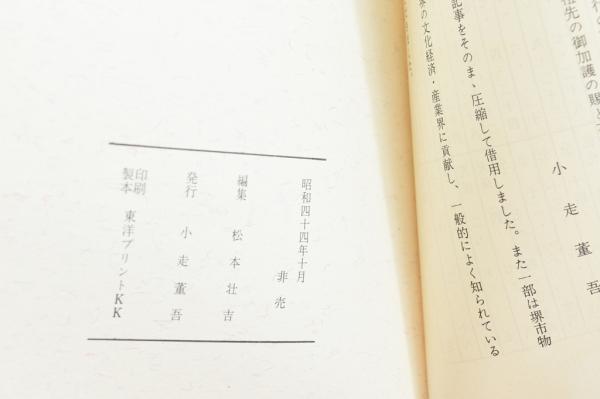 行の
祖先の御加護の賜と
小走董吾
記事をそのまゝ圧縮して借用しました。また一部は堺市物
の文化経済・産業界に貢献し、一般的によく知られている
昭和四十四年十月
非売
編集 松本壮吉
発行 小走董吾
印刷
製本 東洋プリントKK